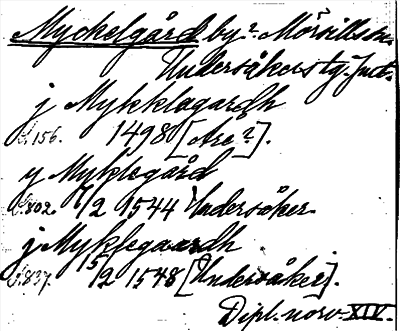 Myckelgård by? Mörsills sn.
Undersåkers tg. Jmt.
j Mykklagardh
S. 156. 1498 [Are?].
y Myklegård
S. 802. 7/2 1544 Undersåker.
j Myklegaardh
S. 837. 15/2 1548 [Undersåker].
Dipl. norv. XIV.